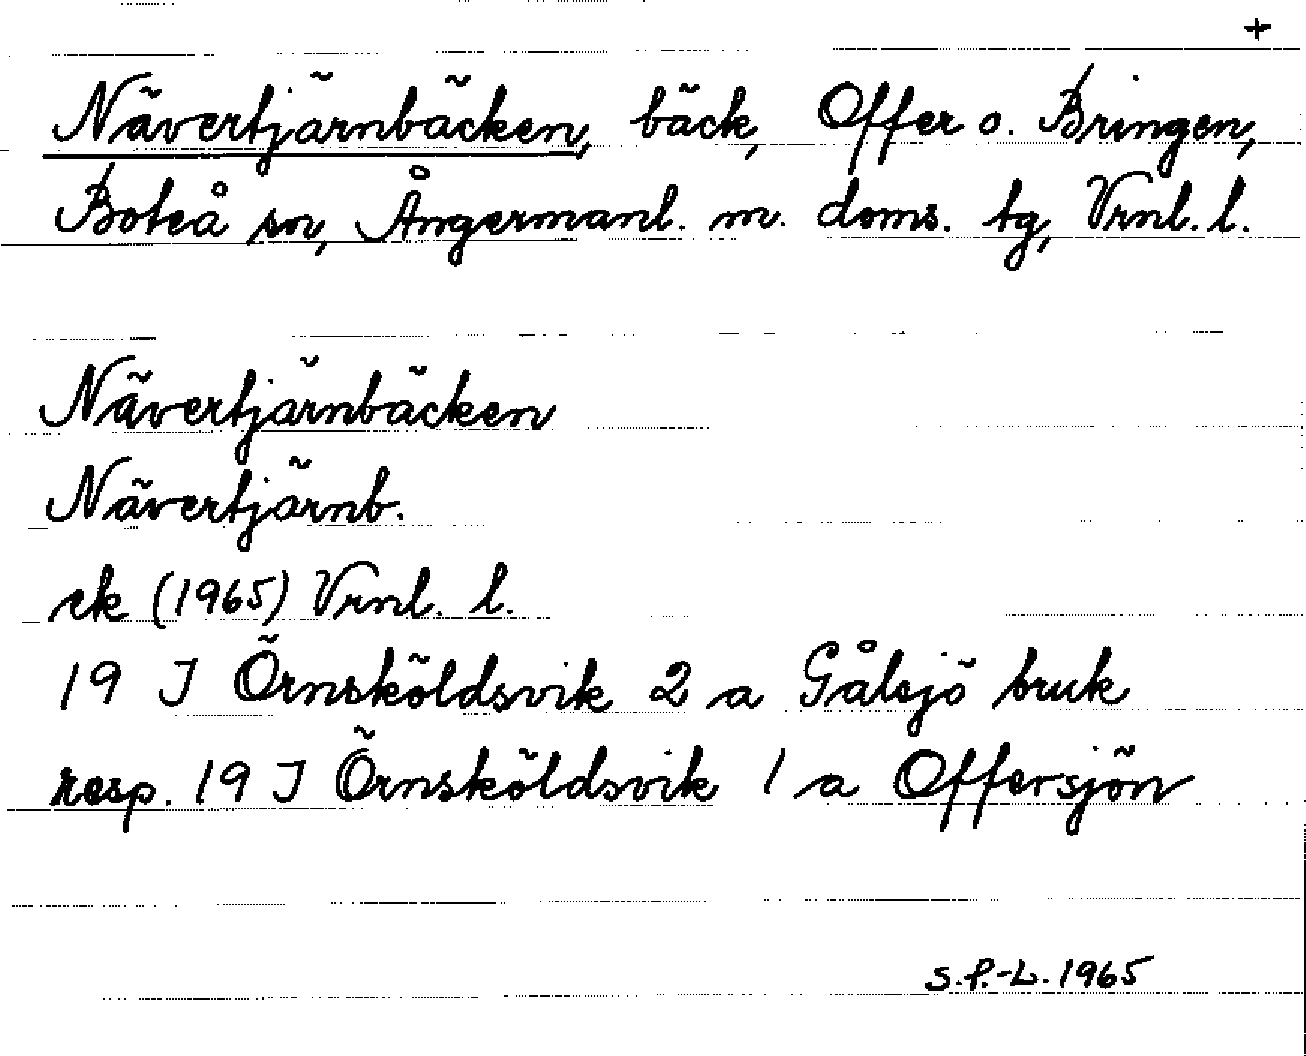 +
Nävertjärnbäcken, bäck, Offer o. Bringen,
Boteå sn, Ångermanl. m. doms. tg, Vrnl. l.
Nävertjärnbäcken
Nävertjärnb.
ek (1965) Vrnl. l.
19 I Örnsköldsvik 2 a Gålsjö bruk
resp. 19 I Örnsköldsvik 1 a Offersjön
S.P.-L. 1965